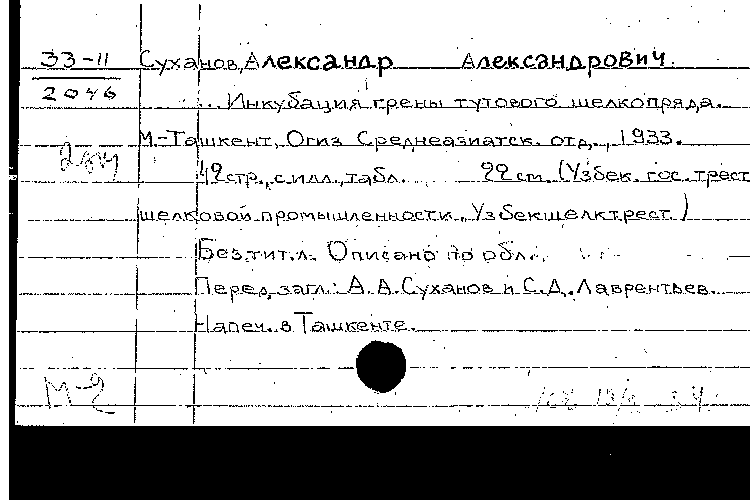 33-11 Суханов, Александр Александрович.
2046
... Инкубация грены тутового шелкопряда.
М.-Ташкент, Огиз Среднеазиатск. отд., 1933.
42 стр., с илл., табл. 22 см. (Узбек. гос. трест
шелковой промышленности „Узбекшелктрест")
Без тит. л. Описано по обл.
Перед загл.: А.А. Суханов и С.Д. Лаврентьев.
Напеч. в Ташкенте.
М-2